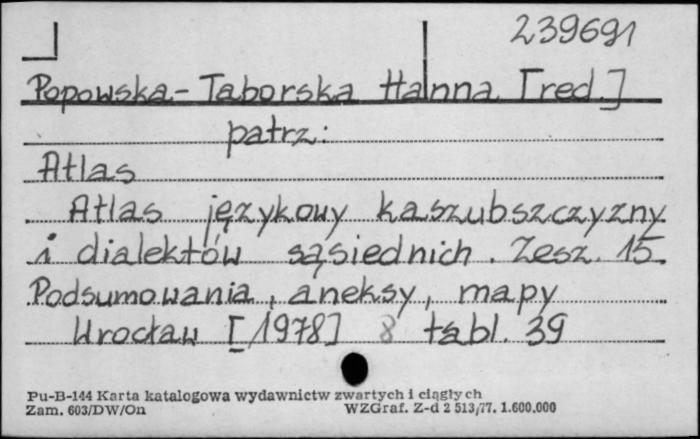 239691
Popowska-Taborska Hanna [red.]
patrz:
Atlas
Atlas językowy kaszubszczyzny
i dialektów sąsiednich. Zesz. 15.
Podsumowania, aneksy, mapy
Wrocław [1978] 8 tabl. 39
Pu-B-144 Karta katalogowa wydawnictw zwartych i ciągłych
Zam. 603/DW/On WZGraf. Z-d 2 513/77. 1.600.000